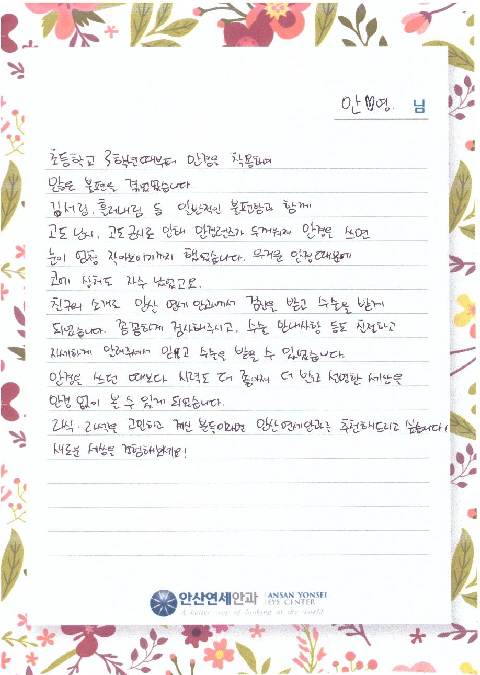 안 영. 님
초등학교 3학년때부터 안경을 착용하며
많은 불편을 겪었었습니다.
김서림, 흘러내림 등 일반적인 불편함과 함께
고도 난시, 고도 근시로 인해 안경렌즈가 두꺼워져 안경을 쓰면
눈이 엄청 작아보이기까지 했었습니다. 무거운 안경때문에
코에 상처도 자주 났었고요.
친구의 소개로 안산 연세안과에서 검진을 받고 수술을 받게
되었습니다. 꼼꼼하게 검사해주시고, 수술 안내사항 등도 친절하고
자세하게 알려주셔서 믿고 수술을 받을 수 있었습니다.
안경을 쓰던 때보다 시력도 더 좋아져 더 밝고 선명한 세상을
안경 없이 볼 수 있게 되었습니다.
라식·라섹을 고민하고 계신 분들이라면 안산연세안과를 추천해드리고 싶습니다.
새로운 세상을 경험해보세요!
안산연세안과 ANSAN YONSEI EYE CENTER
A better way of looking at the world